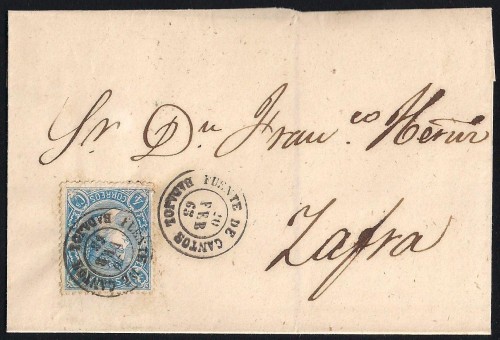 Sr. Dn Franco
Zafra
FUENTE DE CANTOS
BADAJOZ
20
FEB
65
4 CORREOS
FUENTE DE CANTOS
BADAJOZ